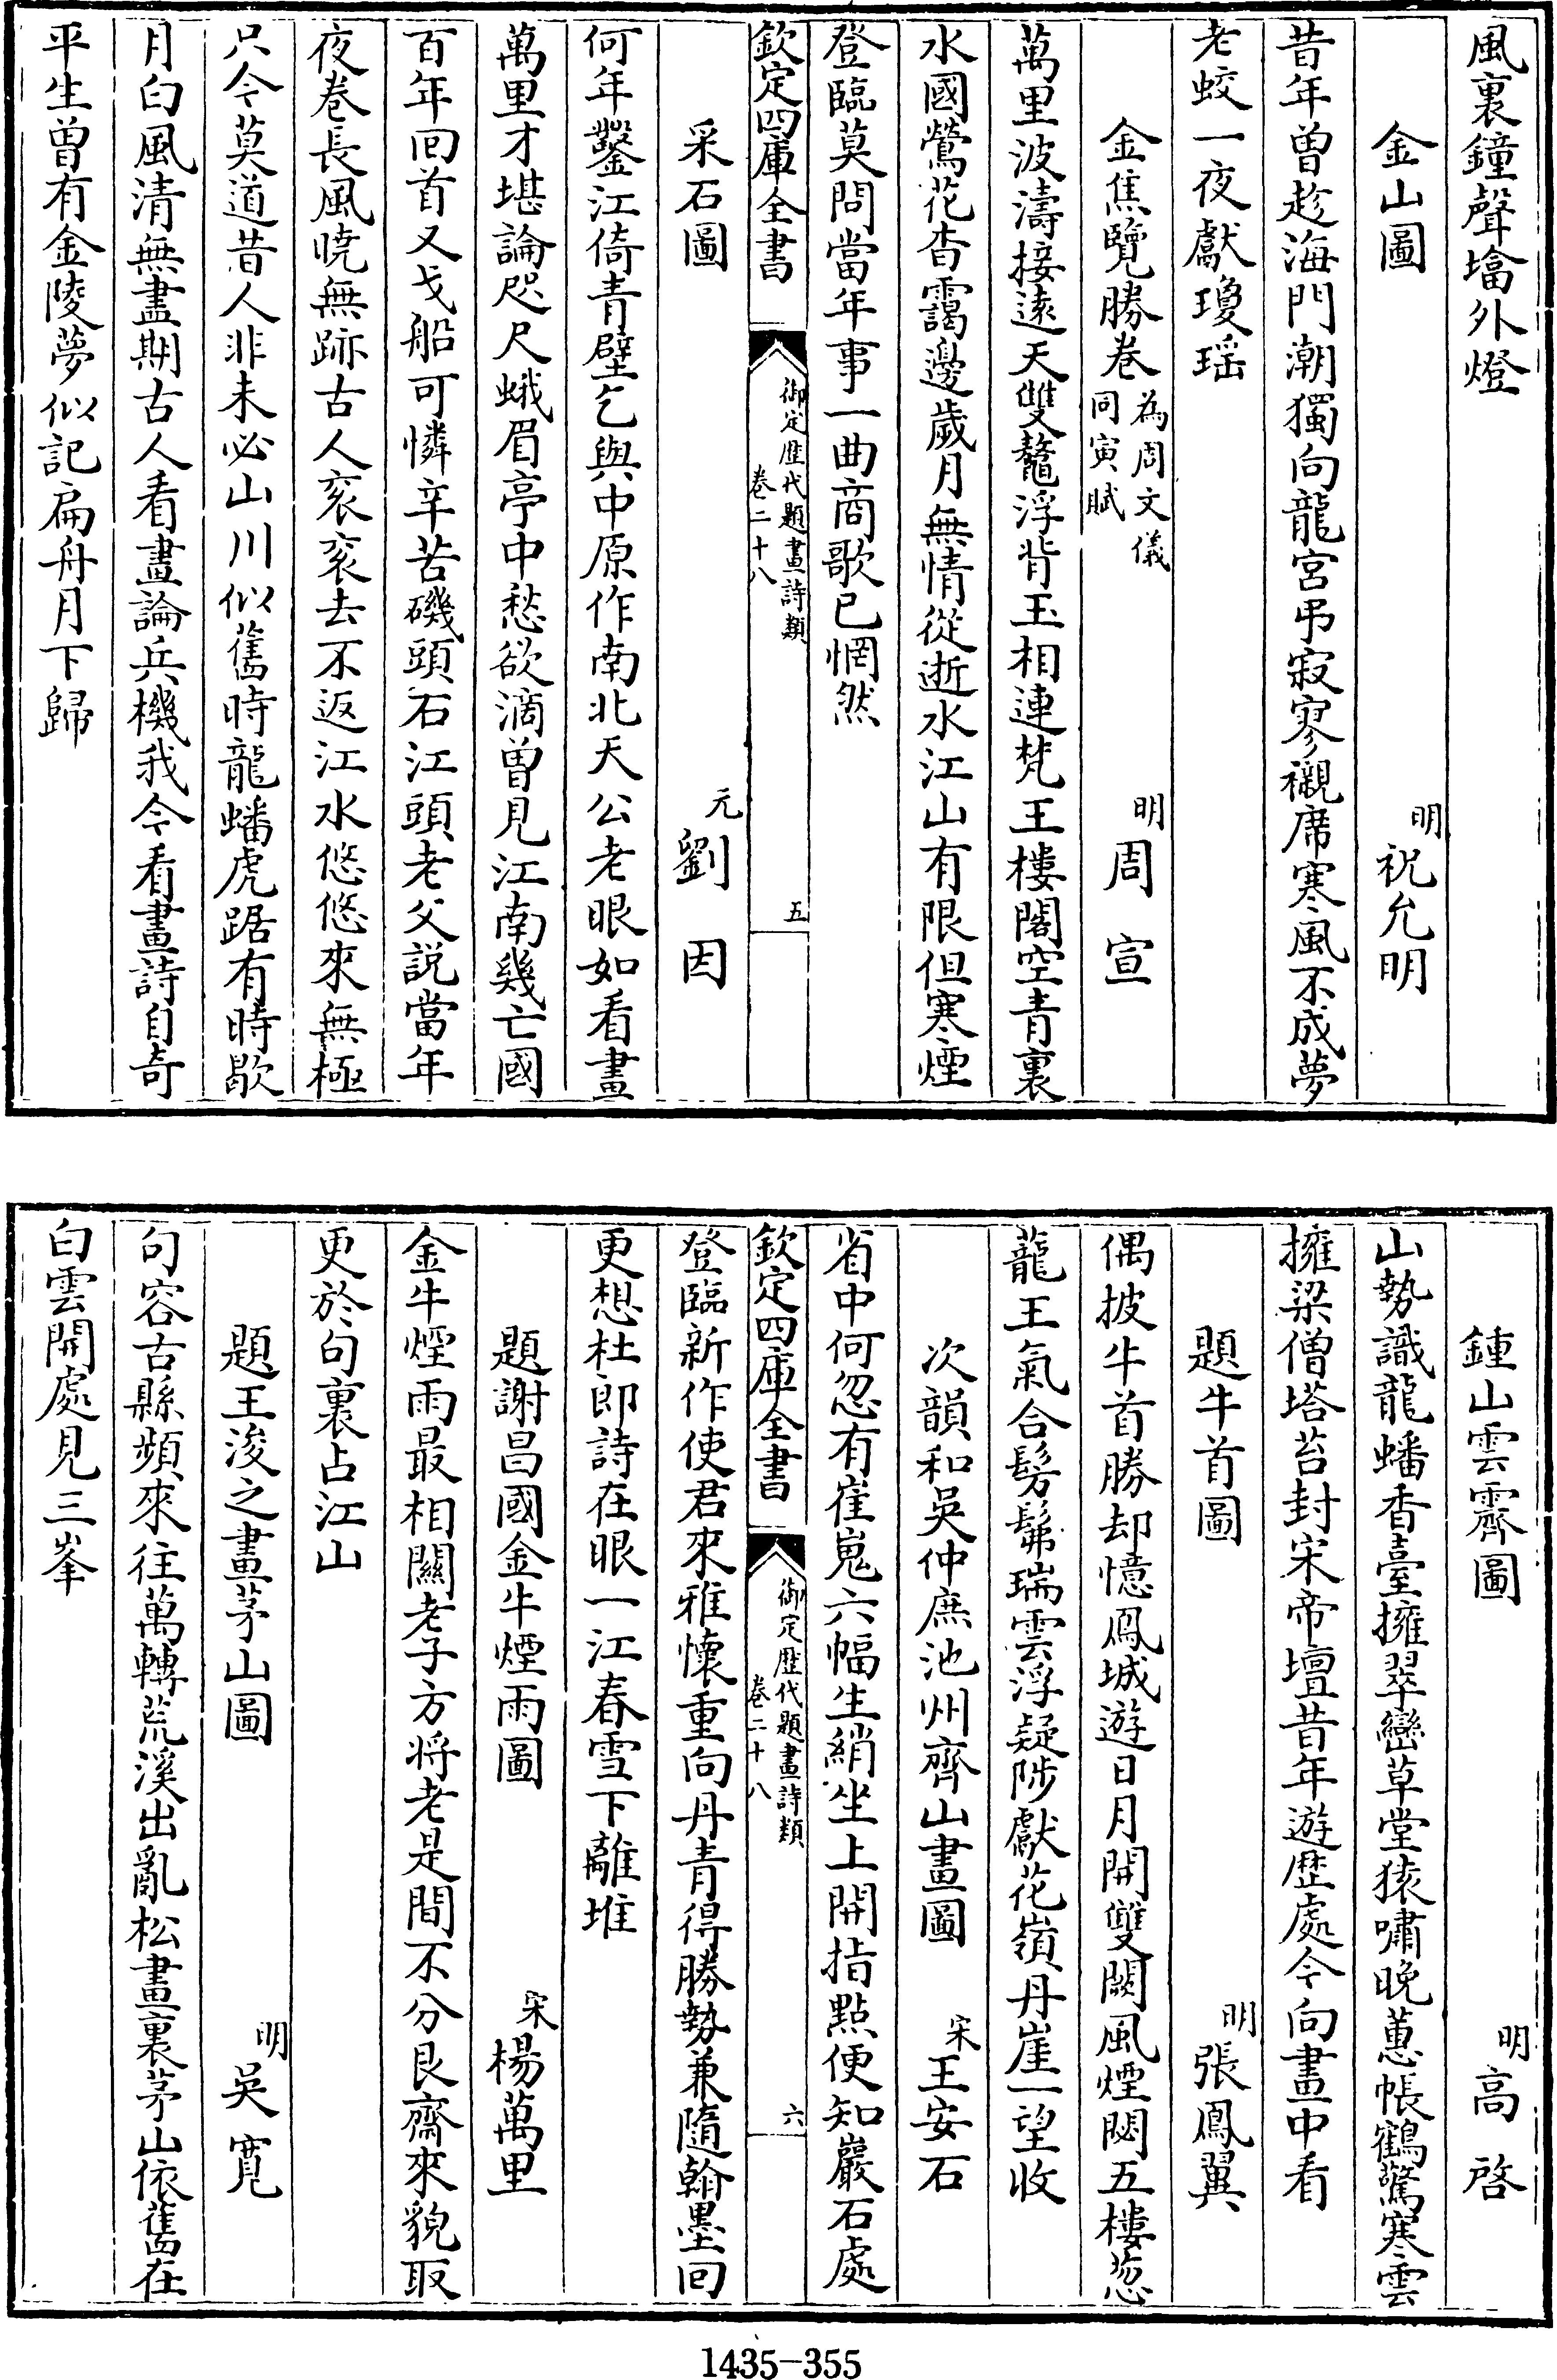 風裏鐘聲墖外燈
金山圖 明祝允明
昔年曾趁海門潮獨向龍宮弔寂寥襯席寒風不成夢
老蛟一夜獻瓊瑶
金焦覽勝卷為周文儀同寅賦 明周宣
萬里波濤接遠天雙鼇浮背玉相連梵王樓閣空青裏
水國鶯花杳靄邊歲月無情從逝水江山有限但寒煙
登臨莫問當年事一曲商歌已惘然
欽定四庫全書 御定歴代題畫詩類卷二十八 五
采石圖 元劉因
何年鑿江倚青壁乞與中原作南北天公老眼如看畫
萬里才堪論咫尺蛾眉亭中愁欲滴曽見江南幾亡國
百年回首又戈船可憐辛苦磯頭石江頭老父説當年
夜卷長風曉無跡古人衮衮去不返江水悠悠來無極
只今莫道昔人非未必山川似舊時龍蟠虎踞有時歇
月白風清無盡期古人看畫論兵機我今看畫詩自奇
平生曾有金陵夢似記扁舟月下歸
鍾山雲霽圖 明高啓
山勢識龍蟠香臺擁翠巒草堂猿嘯晚蕙帳鶴驚寒雲
擁梁僧塔苔封宋帝壇昔年遊歴處今向畫中看
題牛首圖 明張鳳翼
偶披牛首勝却憶鳳城遊日月開雙闕風煙閟五樓葱
蘢王氣合髣髴瑞雲浮疑陟獻花嶺丹崖一望收
次韻和吳仲庶池州齊山畫圖 宋王安石
省中何忽有崔嵬六幅生綃坐上開指點便知巖石處
欽定四庫全書 御定歴代題畫詩類卷二十八 六
登臨新作使君來雅懷重向丹青得勝勢兼隨翰墨回
更想杜郎詩在眼一江春雪下離堆
題謝昌國金牛煙雨圖 宋楊萬里
金牛煙雨最相關老子方將老是間不分艮齋來貌取
更於句裏占江山
題王浚之畫茅山圖 明吳寛
句容古縣頻來往萬轉荒溪出亂松畫裏茅山依舊在
白雲開處見三峯
1435-355